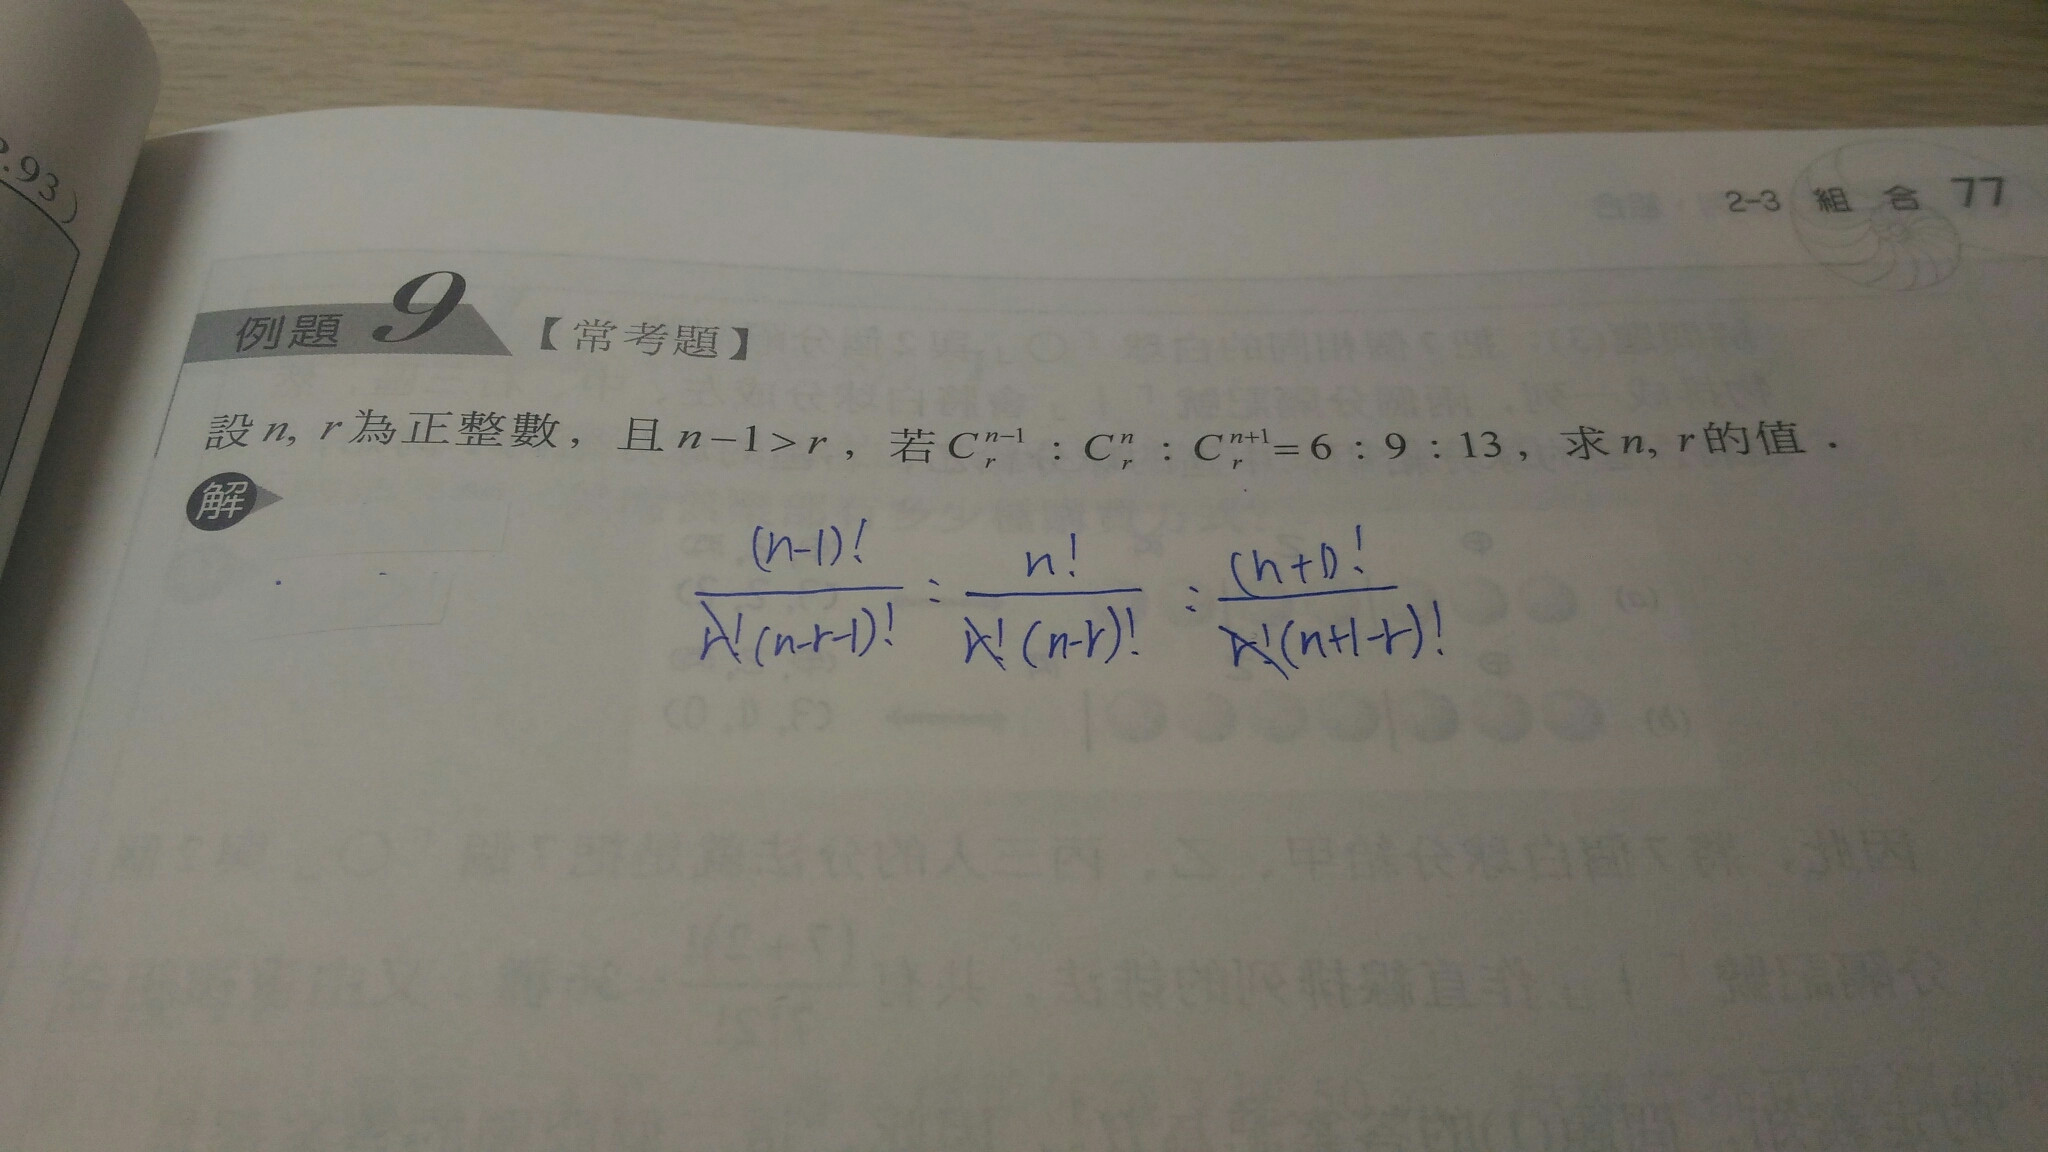 .93)
2-3 組 合 77
例題 9 【常考題】
設 n, r 為正整數, 且 n－1＞r, 若 C^{n-1}_r : C^n_r : C^{n+1}_r = 6 : 9 : 13, 求 n, r 的值.
解
(n-1)!/r!(n-r-1)! : n!/r!(n-r)! : (n+1)!/r!(n+1-r)!